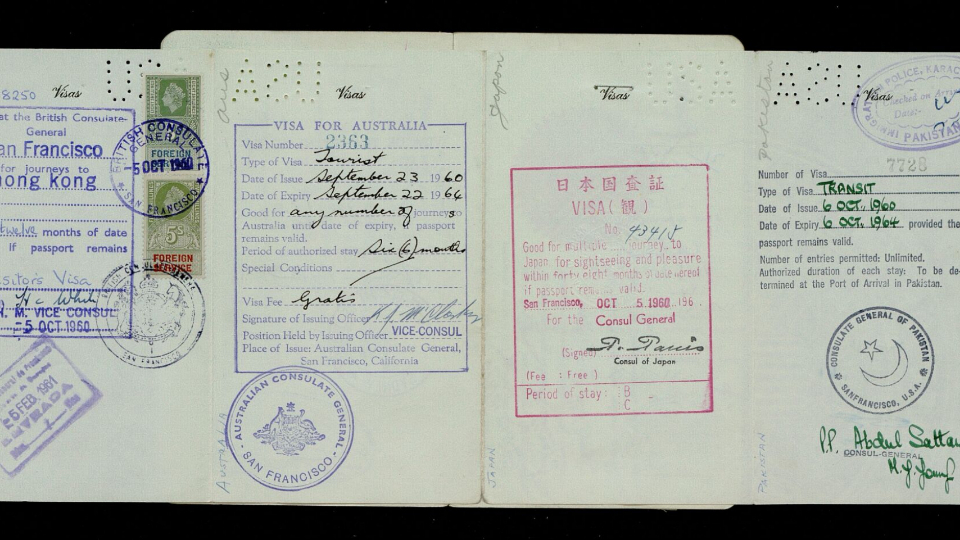 8250
Visas
at the British Consulate-
General
San Francisco
for journeys to
hong kong
Twelve months of date
if passport remains
isitor's Visa
H. M. VICE CONSUL
-5 OCT 1960
BRITISH CONSULATE
GENERAL
-5 OCT 1960
SAN FRANCISCO
FOREIGN
5s
FOREIGN
SERVICE
SAN FRANCISCO
FEB. 1961
Visas
VISA FOR AUSTRALIA
Visa Number 2363
Type of Visa Tourist
Date of Issue September 23 19 60
Date of Expiry September 22 19 64
Good for any number of journeys
Australia until date of expiry, if passport
remains valid.
Period of authorized stay Six (6) months
Special Conditions
Visa Fee Gratis
Signature of Issuing Officer
Position Held by Issuing Officer VICE-CONSUL
Place of Issue: Australian Consulate General,
San Francisco, California
AUSTRALIAN CONSULATE GENERAL
SAN FRANCISCO
AUSTRALIA
Japan
Visas
日本国査証
VISA (観)
No.
Good for multiple journey to
Japan for sightseeing and pleasure
within forty eight months of date hereof
if passport remains valid.
San Francisco, OCT 5. 1960 196
For the Consul General
(Signed)
Consul of Japan
(Fee : Free )
Period of stay : B
C
JAPAN
Pakistan
USA
Visas
POLICE, KARACHI
Date:
PAKISTAN
7728
Number of Visa
Type of Visa TRANSIT
Date of Issue 6 OCT., 1960
Date of Expiry 6 OCT, 1964 provided the
passport remains valid.
Number of entries permitted: Unlimited.
Authorized duration of each stay: To be de-
termined at the Port of Arrival in Pakistan.
CONSULATE GENERAL OF PAKISTAN
SANFRANCISCO, U.S.A.
P.P. Abdul Sattar
CONSUL-GENERAL
PAKISTAN